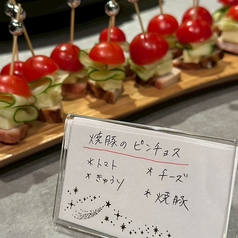 焼豚のピンチョス
*トマト
*チーズ
*きゅうり
*焼豚